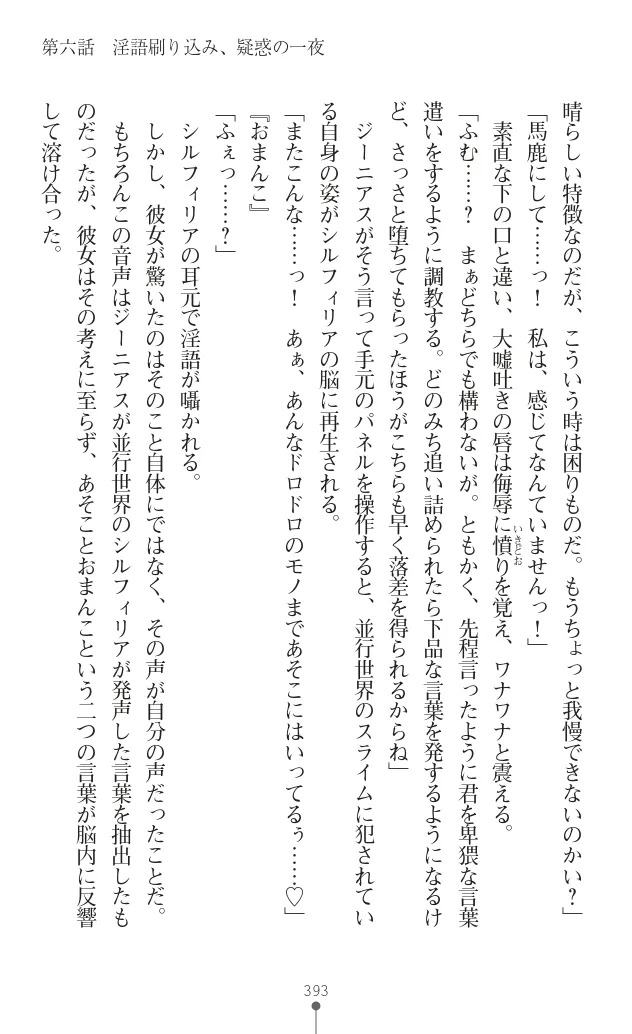 第六話　淫語刷り込み、疑惑の一夜
晴らしい特徴なのだが、こういう時は困りものだ。もうちょっと我慢できないのかい？」
「馬鹿にして……っ！　私は、感じてなんていませんっ！」
　素直な下の口と違い、大嘘吐きの唇は侮辱に憤りを覚え、ワナワナと震える。
いきどお
「ふむ……？　まぁどちらでも構わないが。ともかく、先程言ったように君を卑猥な言葉
遣いをするように調教する。どのみち追い詰められたら下品な言葉を発するようになるけ
ど、さっさと堕ちてもらったほうがこちらも早く落差を得られるからね」
　ジーニアスがそう言って手元のパネルを操作すると、並行世界のスライムに犯されてい
る自身の姿がシルフィリアの脳に再生される。
「またこんな……っ！　あぁ、あんなドロドロのモノまであそこにはいってるぅ……♡」
『おまんこ』
「ふぇっ……？」
　シルフィリアの耳元で淫語が囁かれる。
　しかし、彼女が驚いたのはそのこと自体にではなく、その声が自分の声だったことだ。
　もちろんこの音声はジーニアスが並行世界のシルフィリアが発声した言葉を抽出したも
のだったが、彼女はその考えに至らず、あそことおまんこという二つの言葉が脳内に反響
して溶け合った。
393